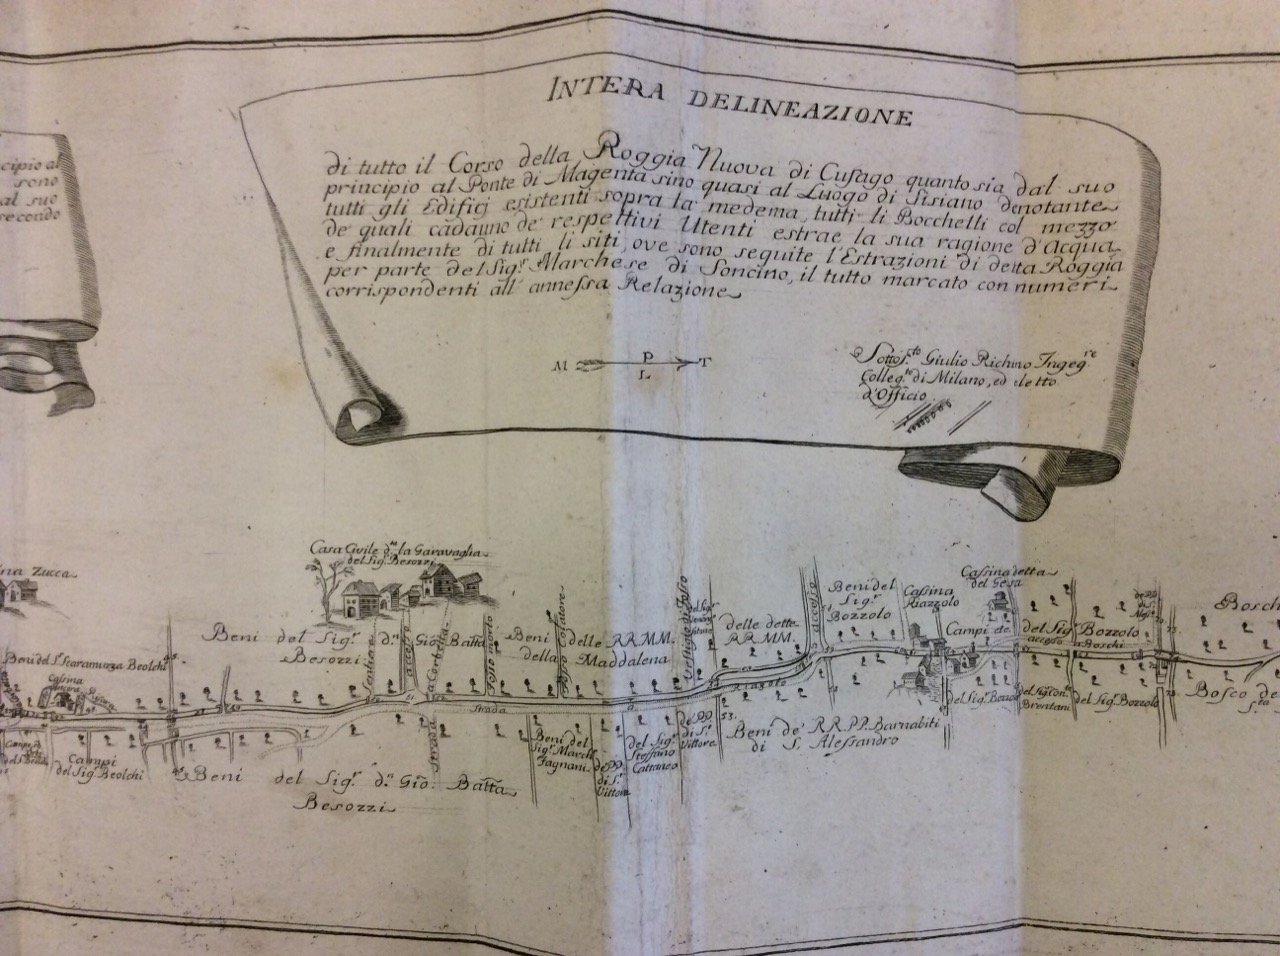 INTERA DELINEAZIONE
di tutto il Corso della Roggia Nuova di Cusago quanto sia dal suo
principio al Ponte di Magenta sino quasi al Luogo di Sisiano denotante
tutti gli Edificj esistenti sopra la medema, tutti li Bocchelli col mezzo
de quali cadauno de' respettivi Utenti estrae la sua ragione d'Acqua,
e finalmente di tutti li siti, ove sono seguite l'Estrazioni di detta Roggia
per parte del Sig.r Marchese di Soncino, il tutto marcato con numeri
corrispondenti all' annessa Relazione
M P T
L
Sotto.to Giulio Richino Ingeg.re
Colleg.to di Milano, ed eletto
d'Officio
cipio al
sono
al suo
secondo
ina Zucca
Casa Civile d.ta la Garavaglia
del Sig.r Besozzi
Beni del Sig.r D.n Gio Batta
Besozzi
Beni delle RR.MM.
della Maddalena
delle dette
RR.MM.
accesso
Beni del
Sig.r
Bozzolo
Cassina
Riazzolo
Cassina detta
del Gesa
Campi
del Sig.r Bozzolo
accesso Boschi
Bosch
Beni del S.r Scaramuzza Beolchi
Cassina
accesso
Strada
Riazolo
53.
del Sig.r Bozzolo
del Sig. Con.
Brentani
del Sig.r Bozzolo
Bosco de
Campi
del Sig.r Beolchi
Beni del Sig.r D.n Gio: Batta
Besozzi
Strada
Beni del
Sig.r March.
Fagnani
de PP.
di S.
Vittore
del Sig.r
Steffano
Cattaneo
de PP.
di S.
Vittore
Beni de' RR.PP. Barnabiti
di S. Alessandro